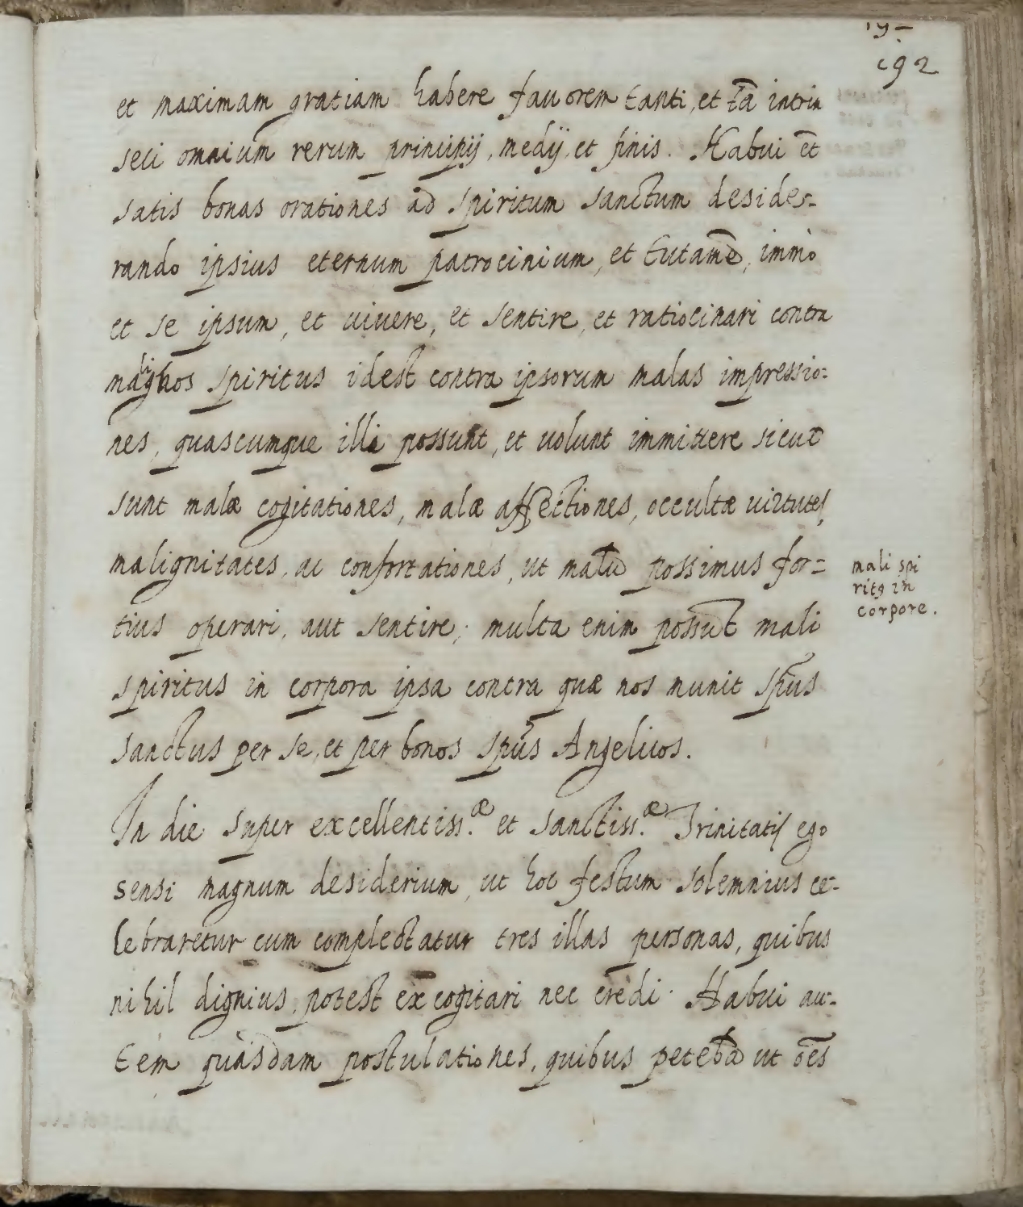 192
et maximam gratiam habere fauorem tanti, et tā intrin
seci omnium rerum principij, medij, et finis. Habui et̄
satis bonas orationes ad spiritum sanctum deside=
rando ipsius eternum patrocinium, et tutamē, immo
et se ipsum, et uiuere, et sentire, et ratiocinari contra
malignos spiritus idest contra ipsorum malas impressio=
nes, quascumque illi possunt, et uolunt immittere sicut
sunt malæ cogitationes, malæ affectiones, occultæ uirtutes,
malignitates, ac confortationes, ut malū possimus for=
tius operari, aut sentire; multa enim possūt mali
spiritus in corpora ipsa contra quæ nos munit sp̄us
sanctus per se, et per bonos sp̄us Angelicos.
mali spi
ritꝯ in
corpore.
In die super excellentiss.æ et sanctiss.æ Trinitatis ego
sensi magnum desiderium, ut hoc festum solemnius ce=
lebraretur cum complectatur tres illas personas, quibus
nihil dignius potest excogitari nec credi. Habui au=
tem quasdam postulationes, quibus petebā ut oēs